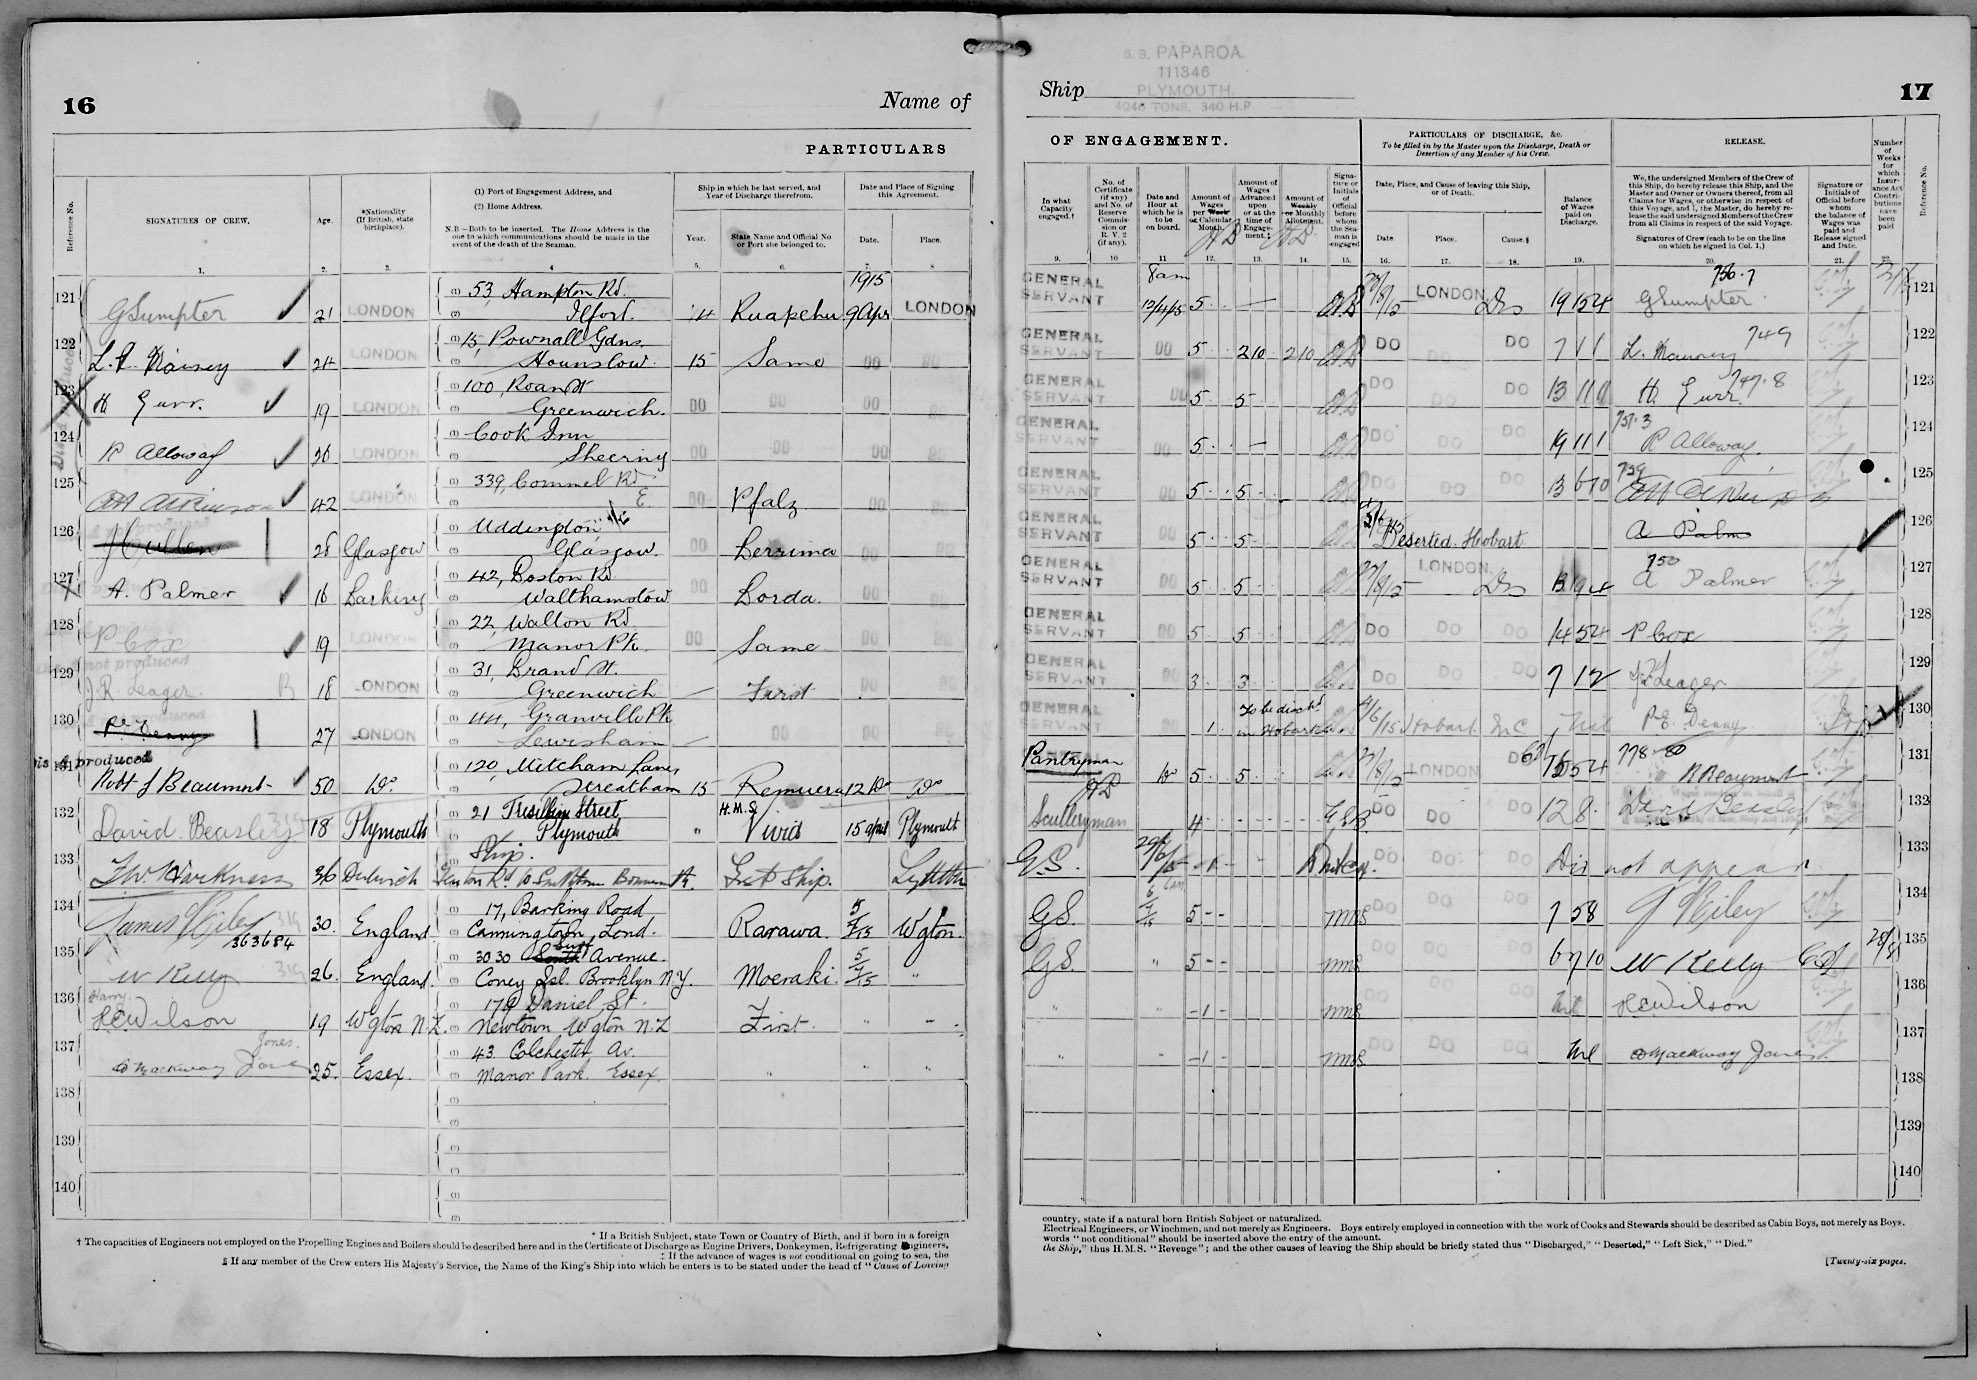 16
Name of
PARTICULARS
Reference No.
SIGNATURES OF CREW.
Age.
*Nationality
(If British, state
birthplace).
(1) Port of Engagement Address, and
(2) Home Address.
N.B—Both to be inserted. The Home Address is the
one to which communications should be made in the
event of the death of the Seaman.
Ship in which he last served, and
Year of Discharge therefrom.
Year.
State Name and Official No
or Port she belonged to.
Date and Place of Signing
this Agreement.
Date.
Place.
1. 2. 3. 4 5. 6. 7. 8
1915
121 GSumpter 21 LONDON 53, Hampton Rd. Ilford. '14 Ruapehu 9 Apr LONDON
122 24 LONDON 15, Pownall Gdns, Hounslow. 15 Same DO DO
123 H Gurr. 19 LONDON 100, Roan St Greenwich. DO DO DO
124 R Alloway 26 LONDON Cook Inn DO DO DO
125 42 LONDON 339, Commel Rd E. DO Pfalz DO
126 28 Glasgow Uddington, Glasgow. Berrima DO
127 A. Palmer 16 Barking 42, Boston Rd Walthamstow DO Borda. DO
128 P Cox 19 LONDON 22, Walton Rd Manor Pk. DO Same DO
not produced
129 J.R. Leager. 18 LONDON 31, Brand St. Greenwich — First DO
130 27 LONDON 44, Granville Pk Lewisham — DO DO
Dis A produced
131 Robt J Beaumont 50 Do 120, Mitcham Lane, Streatham 15 Remuera 12 Do Do
132 David Beasley 18 Plymouth 21 Street Plymouth " H.M.S. Vivid 15 April Plymouth
133 36 Dulwich Ship. Ship.
134 James 30. England. 17, Barking Road Canningtown, Lond. Rarawa. 5/7/15 Wgton.
363684
135 W Kelly 26. England. 3030 Surf Avenue. Coney Isl. Brooklyn N.Y. Moeraki. 5/7/15 "
136 Harry HCWilson 19 Wgton N.Z. 179 Daniel St. Newtown Wgton N.Z First. " "
137 Mackway Jones 25. Essex. 43 Colchester Av. Manor Park. Essex. " " "
138
139
140
* If a British Subject, state Town or Country of Birth, and if born in a foreign
† The capacities of Engineers not employed on the Propelling Engines and Boilers should be described here and in the Certificate of Discharge as Engine Drivers, Donkeymen, Refrigerating Engineers,
‡ If the advance of wages is not conditional on going to sea, the
§ If any member of the Crew enters His Majesty's Service, the Name of the King's Ship into which he enters is to be stated under the head of "Cause of Leaving
S. S. PAPAROA.
111346
PLYMOUTH.
4246 TONS. 840 H.P.
Ship
17
OF ENGAGEMENT.
PARTICULARS OF DISCHARGE, &c.
To be filled in by the Master upon the Discharge, Death or
Desertion of any Member of his Crew.
RELEASE.
In what
Capacity
engaged.†
No. of
Certificate
(if any)
and No. of
Reserve
Commis-
sion or
R. V. 2
(if any).
Date and
Hour at
which he is
to be
on board.
Amount of
Wages
per Week
or Calendar
Month.
Amount of
Wages
Advanced
upon
or at the
time of
Engage-
ment.‡
Amount of
Weekly
or Monthly
Allotment.
Signa-
ture or
Initials
of
Official
before
whom
the Sea-
man is
engaged
Date, Place, and Cause of leaving this Ship,
or of Death.
Date
Place.
Cause.§
Balance
of Wages
paid on
Discharge.
We, the undersigned Members of the Crew of
this Ship, do hereby release this Ship, and the
Master and Owner or Owners thereof, from all
Claims for Wages, or otherwise in respect of
this Voyage, and I, the Master, do hereby re-
lease the said undersigned Members of the Crew
from all Claims in respect of the said Voyage.
Signatures of Crew (each to be on the line
on which he signed in Col. 1.)
Signature or
Initials of
Official before
whom
the balance of
Wages was
paid and
Release signed
and Date.
Number
of
Weeks
for
which
Insur-
ance Act
Contri-
butions
have
been
paid
Reference No.
9. 10 11 12. 13. 14. 15. 16. 17. 18. 19. 20. 21. 22.
GENERAL SERVANT 8am 12/4/15 5 — LONDON Dis 19 15 4 GSumpter 121
GENERAL SERVANT DO 5 2 10 2 10 DO DO DO 7 1 1 749 122
GENERAL SERVANT DO 5 5 DO DO DO H. Gurr. 747.8 123
GENERAL SERVANT DO 5 — DO DO DO 19 11 1 751.3 R Alloway. 124
GENERAL SERVANT DO 5 5 DO DO DO 13 6 10 759 125
GENERAL SERVANT DO 5 5 Deserted. Hobart 126
GENERAL SERVANT DO 5 5 LONDON Dis 13 19 4 750 A Palmer 127
GENERAL SERVANT DO 5 5 DO DO DO 14 5 4 P Cox 128
GENERAL SERVANT DO 3 3 DO DO DO Leager 129
GENERAL SERVANT 1. To be disch'd in Hobart Hobart Nil Denny 130
Pantryman Do 5 5 LONDON DO R Beaumont 131
Sculleryman 4 DO DO DO 12 8 Beasley 132
G.S. DO DO DO Did not appear 133
G.S. 6am 5 - - MMS DO DO DO 7 5 8 134
G.S. " 5 - - MMS DO DO DO 6 7 10 W Kelly 135
" " 1 MMS DO DO DO Nil HCWilson 136
" " 1 MMS DO DO DO Nil Mackway Jones. 137
138
139
140
country, state if a natural born British Subject or naturalized.
Electrical Engineers, or Winchmen, and not merely as Engineers. Boys entirely employed in connection with the work of Cooks and Stewards should be described as Cabin Boys, not merely as Boys.
words "not conditional" should be inserted above the entry of the amount.
the Ship," thus H.M.S. "Revenge"; and the other causes of leaving the Ship should be briefly stated thus "Discharged," "Deserted," "Left Sick," "Died."
[Twenty-six pages.